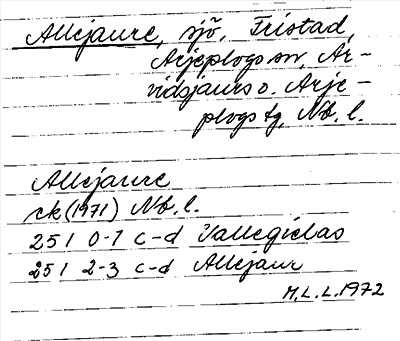 Allejaure, sjö, Fristad,
Arjeplogs sn, Ar-
vidsjaurs o. Arje-
plogs tg, Nb. l.
Allejaure
rek (1971) Nb. l.
251 0-1 c-d Vallegielas
251 2-3 c-d Allejaur
M. L. L. 1972